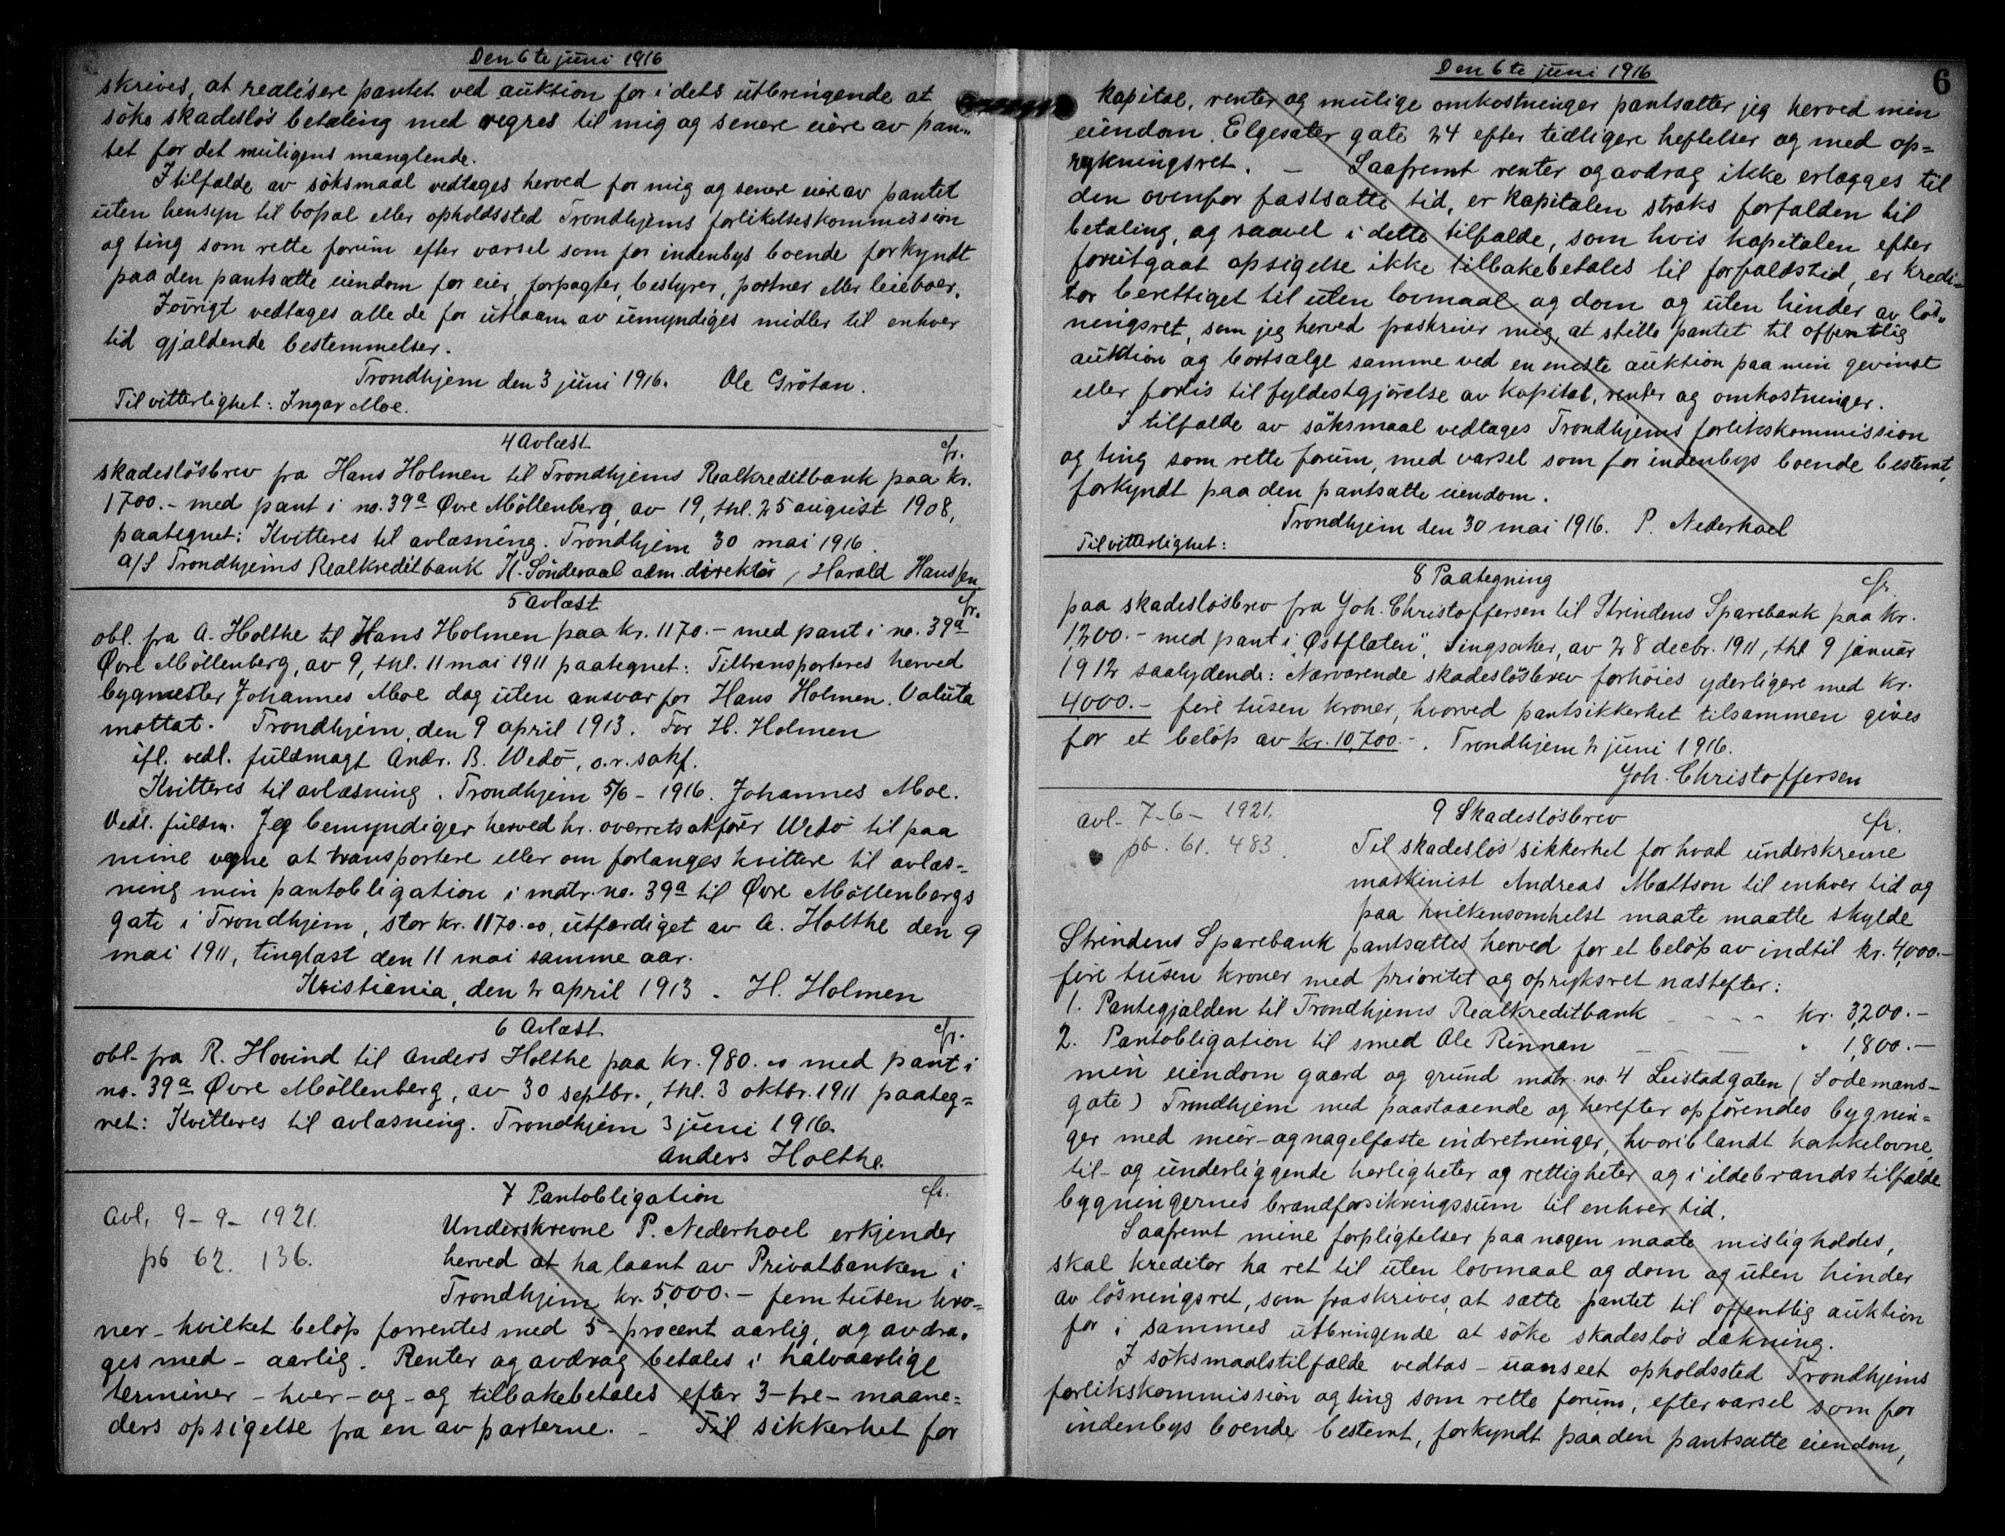 Den 6te juni 1916
skrives, at realisere pantet ved auktion for i dets utbringende at
söke skadeslös betaling med regres til mig og senere eiere av pan„
tet for det muligens manglende.
I tilfælde av söksmaal vedtages herved for mig og senere eier av pantet
uten hensyn til bopæl eller opholdssted Trondhjems forlikelseskommission
og ting som rette forum efter varsel som for indenbys boende forkyndt
paa den pantsatte eiendom for eier, forpagter, bestyrer, portner eller leieboer.
Jövrigt vedtages alle de for utlaan av umyndiges midler til enhver
tid gjældende bestemmelser.
Trondhjem den 3 juni 1916. Ole Grötan.
Til vitterlighet: Ingar Moe.
4 Avlæst fr.
skadeslösbrev fra Hans Holmen til Trondhjems Realkreditbank paa kr.
1700.- med pant i no. 39a Øvre Möllenberg, av 19, thl. 25 august 1908,
paategnet: Kvitteres til avlæsning. Trondhjem 30 mai 1916.
A/S Trondhjems Realkreditbank K. Sönderaal adm. direktör, Harald Hanssen
5 Avlæst fr.
obl. fra A. Holthe til Hans Holmen paa kr. 1170.- med pant i no. 39a
Øvre Möllenberg, av 9, thl. 11 mai 1911 paategnet: Tiltransporteres herved
bygmester Johannes Moe dog uten ansvar for Hans Holmen. Valuta
mottat. Trondhjem, den 9 april 1913. For H. Holmen
ifl. vedl. fuldmagt Andr. B. Wedö, o.r.sakf.
Kvitteres til avlæsning. Trondhjem 5/6 - 1916. Johannes Moe.
Vedl. fuldm. Jeg bemyndiger herved hr. overretssakförer Wedö til paa
mine vegne at transportere eller om forlanges kvittere til avlæs-
ning min pantobligation i matr. no. 39a til Øvre Möllenbergs
gate i Trondhjem, stor kr. 1170.00, utfærdiget av A. Holthe den 9
mai 1911, tinglæst den 11 mai samme aar.
Kristiania, den 2 april 1913. H. Holmen
6 Avlæst fr.
obl. fra R. Hovind til Anders Holthe paa kr. 980.00 med pant i
no. 39a Øvre Möllenberg, av 30 septbr., thl. 3 oktbr. 1911 paateg=
net: Kvitteres til avlæsning. Trondhjem 3 juni 1916.
Anders Holthe.
7 Pantobligation fr.
avl. 9-9-1921.
pb 62. 136.
Underskrevne P. Nederhoel erkjender
herved at ha laant av Privatbanken i
Trondhjem kr. 5,000.- fem tusen kro-
ner - hvilket belöp forrentes med 5 - procent aarlig, og avdra-
ges med - aarlig. Renter og avdrag betales i halvaarlige
terminer - hver - og - og tilbakebetales efter 3-tre-maane=
ders opsigelse fra en av parterne. - Til sikkerhet for
Den 6te juni 1916 6
kapital, renter og mulige omkostninger pantsætter jeg herved min
eiendom Elgesæter gate 24 efter tidligere heftelser og med op=
rykningsret. - Saafremt renter og avdrag ikke erlægges til
den ovenfor fastsatte tid, er kapitalen straks forfalden til
betaling, og saavel i dette tilfælde, som hvis kapitalen efter
forutgaat opsigelse ikke tilbakebetales til forfaldstid, er kredi-
tor berettiget til uten lovmaal og dom og uten hinder av lös„
ningsret, som jeg herved fraskriver mig, at stille pantet til offentlig
auktion og bortsælge samme ved en eneste auktion paa min gevinst
eller forlis til fyldestgjörelse av kapital, renter og omkostninger.
I tilfælde av söksmaal vedtages Trondhjems forlikskommission
og ting som rette forum, med varsel som for indenbys boende bestemt,
forkyndt paa den pantsatte eiendom.
Trondhjem den 30 mai 1916. P. Nederhoel
Til vitterlighet:
8 Paategning fr.
paa skadeslösbrev fra Joh. Christoffersen til Strindens Sparebank paa kr.
1,200.- med pant i „Østflaten", Singsaker, av 28 decbr. 1911, thl 9 januar
1912 saalydende: Nærværende skadeslösbrev forhöies yderligere med kr.
4000.- fire tusen kroner, hvorved pantsikkerhet tilsammen gives
for et belöp av kr. 10,700.-. Trondhjem 2 juni 1916.
Joh. Christoffersen
avl. 7-6-1921.
pb. 61. 483.
9 Skadeslösbrev fr.
Til skadeslös sikkerhet for hvad underskrevne
maskinist Andreas Mattson til enhver tid og
paa hvilkensomhelst maate maatte skylde
Strindens Sparebank pantsættes herved for et belöp av indtil kr. 4,000.-
fire tusen kroner med prioritet og opryksret næstefter:
1. Pantegjælden til Trondhjems Realkreditbank - - - - kr. 3,200.-
2. Pantobligation til smed Ole Rinnan - - - " 1,800.-
min eiendom gaard og grund matr. no. 4 Leistadgaten (Sodemans-
gate) Trondhjem med paastaaende og herefter opförendes bygnin-
ger med mur- og nagelfaste indretninger, hvoriblandt kakkelovne,
til- og underliggende herligheter og rettigheter og i ildebrandstilfælde
bygningernes brandforsikringssum til enhver tid.
Saafremt mine forpligtelser paa nogen maate misligholdes,
skal kreditor ha ret til uten lovmaal og dom og uten hinder
av lösningsret, som fraskrives, at sætte pantet til offentlig auktion
for i sammes utbringende at söke skadeslös dækning.
I söksmaalstilfælde vedtas - uanseet opholdssted Trondhjems
forlikskommission og ting som rette forum, efter varsel som for
indenbys boende bestemt, forkyndt paa den pantsatte eiendom,